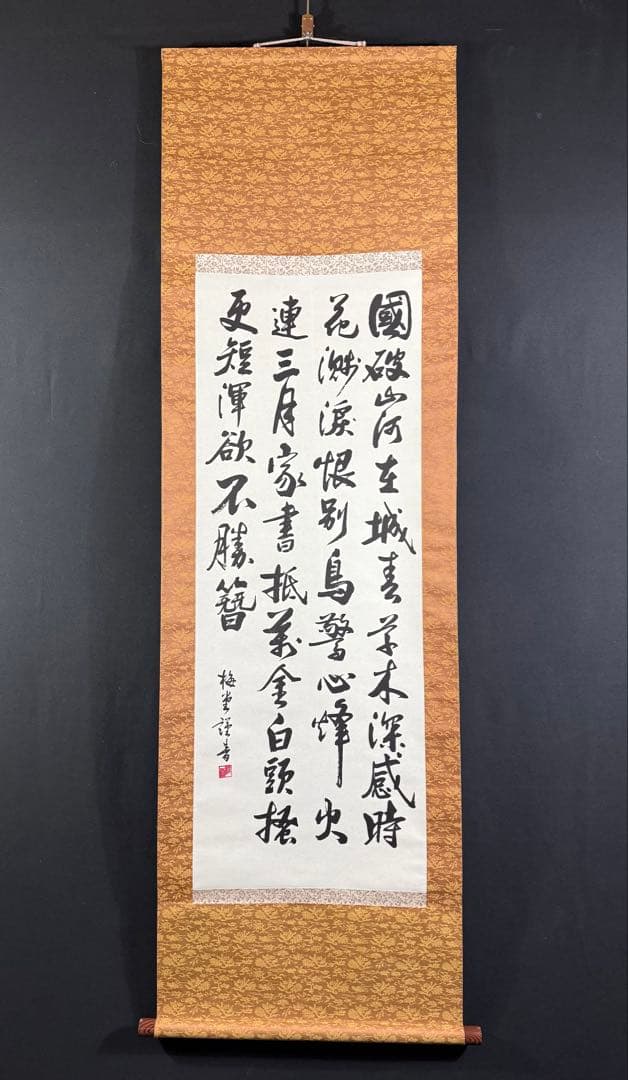 國破山河在城春草木深感時
花濺淚恨別鳥驚心烽火
連三月家書抵萬金白頭搔
更短渾欲不勝簪
梅堂謹書